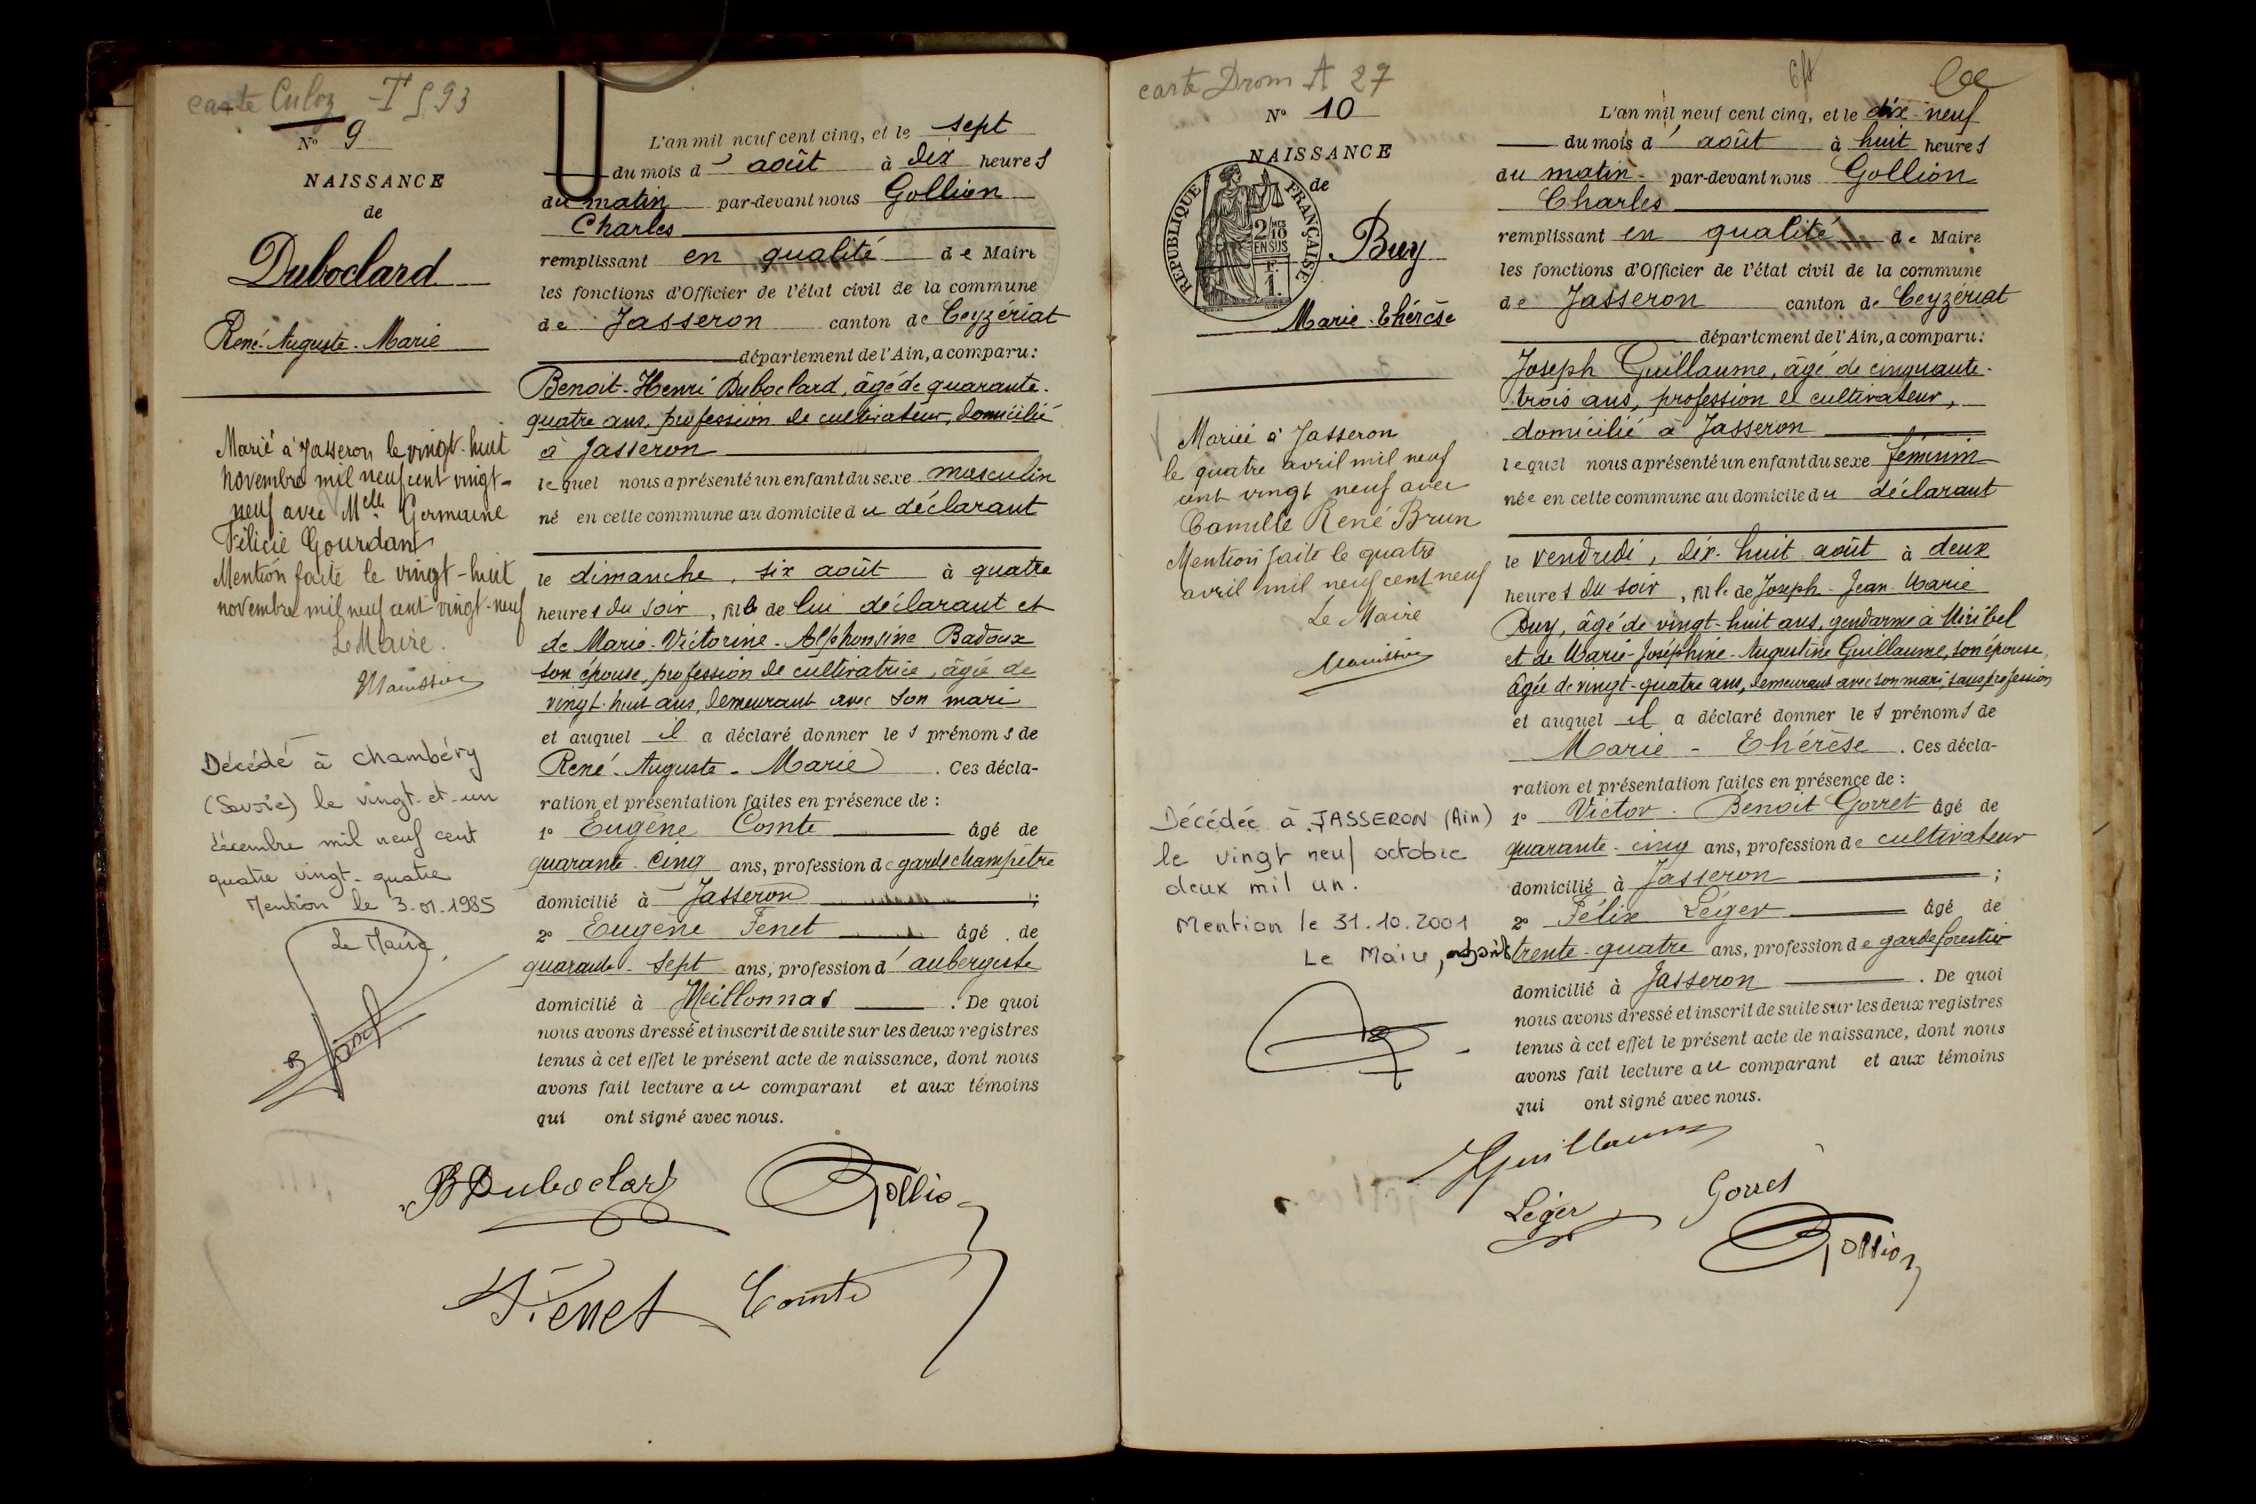 carte Culoz T 593
N° 9
NAISSANCE
de
Duboclard
René-Auguste-Marie
Marié à Jasseron le vingt-huit
novembre mil neuf cent vingt-
neuf avec Melle Germaine
Félicie Gourdant
Mention faite le vingt-huit
novembre mil neuf cent vingt-neuf
Le Maire.
Décédé à Chambéry
(Savoie) le vingt-et-un
décembre mil neuf cent
quatre vingt-quatre
Mention le 3.01.1985
Le Maire,
L'an mil neuf cent cinq, et le sept
du mois d'août à dix heures
du matin par-devant nous Gollion
Charles
remplissant en qualité de Maire
les fonctions d'Officier de l'état civil de la commune
de Jasseron canton de Ceyzériat
département de l'Ain, a comparu:
Benoit-Henri Duboclard, âgé de quarante-
quatre ans, profession de cultivateur, domicilié
à Jasseron
lequel nous a présenté un enfant du sexe masculin
né en cette commune au domicile du déclarant
le dimanche, six août à quatre
heures du soir, fils de lui déclarant et
de Marie-Victorine-Alphonsine Badoux
son épouse, profession de cultivatrice, âgée de
vingt-huit ans, demeurant avec son mari
et auquel il a déclaré donner les prénoms de
René-Auguste-Marie. Ces décla-
ration et présentation faites en présence de:
1° Eugène Comte âgé de
quarante-cinq ans, profession de garde champêtre
domicilié à Jasseron;
2° Eugène Fenet âgé de
quarante-sept ans, profession d'aubergiste
domicilié à Meillonnas. De quoi
nous avons dressé et inscrit de suite sur les deux registres
tenus à cet effet le présent acte de naissance, dont nous
avons fait lecture au comparant et aux témoins
qui ont signé avec nous.
B Duboclard Gollion
Fenet Comte
carte Drom A 27
N° 10
NAISSANCE
de
REPUBLIQUE FRANÇAISE
2/10 EN SUS
1 F.
Buy
Marie-Thérèse
Mariée à Jasseron
le quatre avril mil neuf
cent vingt neuf avec
Camille René Brun
Mention faite le quatre
avril mil neuf cent neuf
Le Maire
Décédée à JASSERON (Ain)
le vingt neuf octobre
deux mil un.
Mention le 31.10.2001
Le Maire, adjoint
L'an mil neuf cent cinq, et le dix-neuf
du mois d'août à huit heures
du matin par-devant nous Gollion
Charles
remplissant en qualité de Maire
les fonctions d'Officier de l'état civil de la commune
de Jasseron canton de Ceyzériat
département de l'Ain, a comparu:
Joseph Guillaume, âgé de cinquante-
trois ans, profession de cultivateur,
domicilié à Jasseron
lequel nous a présenté un enfant du sexe féminin
née en cette commune au domicile du déclarant
le vendredi, dix-huit août à deux
heures du soir, fille de Joseph-Jean-Marie
Buy, âgé de vingt-huit ans, gendarme à Miribel
et de Marie-Joséphine-Augustine Guillaume, son épouse,
âgée de vingt-quatre ans, demeurant avec son mari, sans profession
et auquel il a déclaré donner les prénoms de
Marie-Thérèse. Ces décla-
ration et présentation faites en présence de:
1° Victor-Benoit Gorret âgé de
quarante-cinq ans, profession de cultivateur
domicilié à Jasseron;
2° Félix Léger âgé de
trente-quatre ans, profession de garde forestier
domicilié à Jasseron. De quoi
nous avons dressé et inscrit de suite sur les deux registres
tenus à cet effet le présent acte de naissance, dont nous
avons fait lecture au comparant et aux témoins
qui ont signé avec nous.
Guillaume
Léger Gorret
Gollion